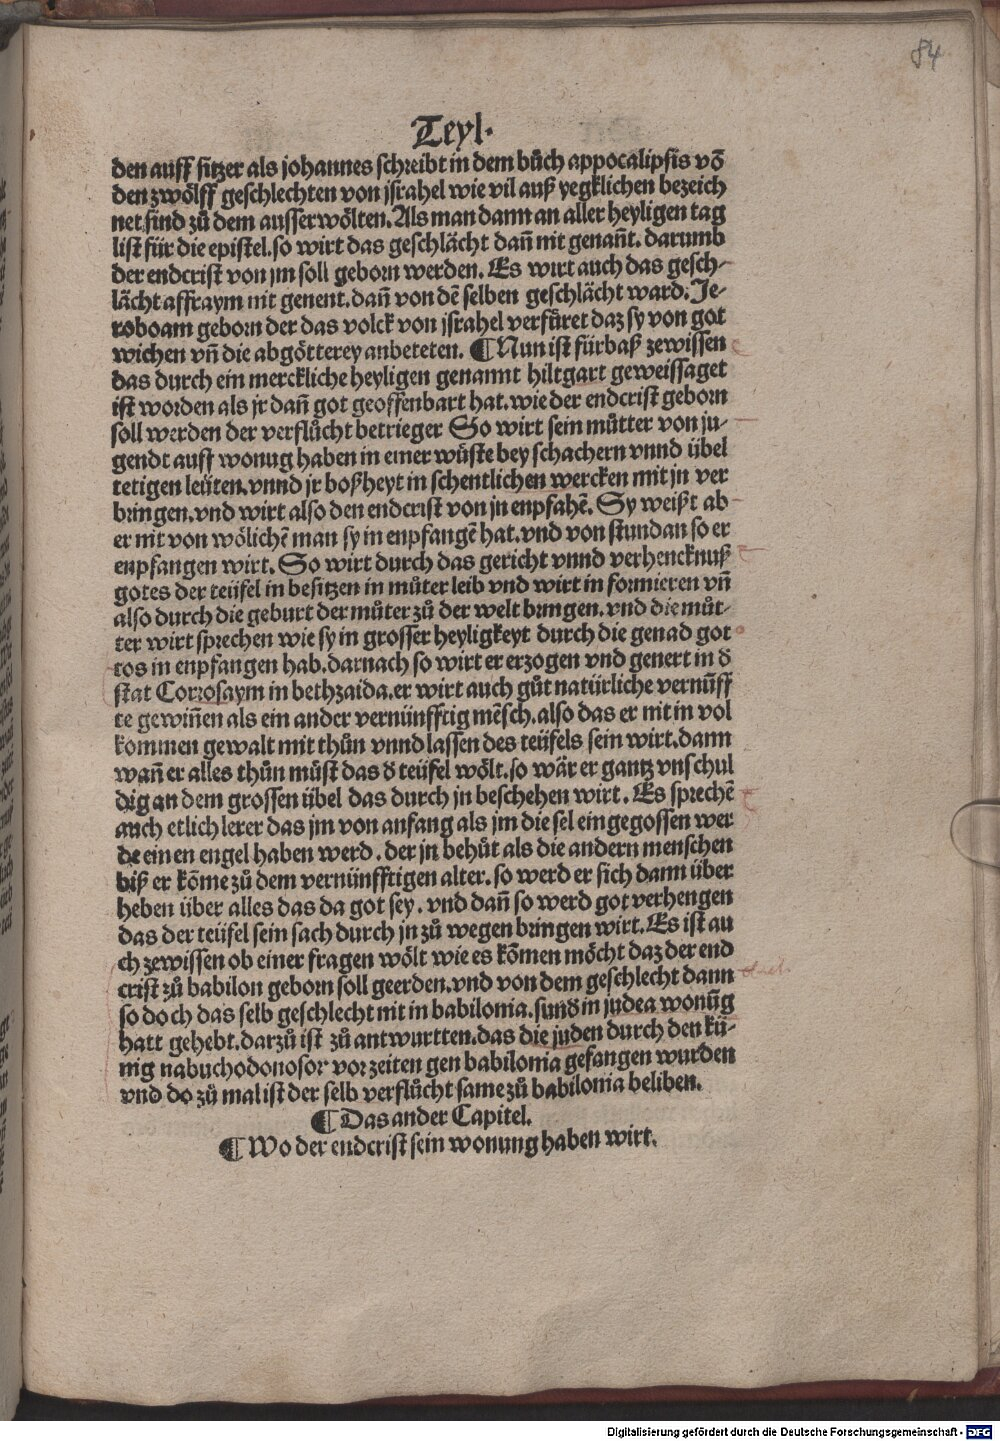 84
Teyl.
den auff sitzer als johannes schreibt in dem bůch appocalipsis võ
den zwölff geschlechten von jsrahel wie vil auß yegklichen bezeich
net sind zů dem ausserwölten. Als man dann an aller heyligen tag
list für die epistel. so wirt das geschlächt dañ nit genañt. darumb
der endcrist von jm soll geborn werden. Es wirt auch das gesch-
lächt affraym nit genent. dañ von dẽ selben geschlächt ward. Je-
roboam geborn der das volck von jsrahel verfüret daz sy von got
wichen vñ die abgötterey anbeteten. ¶ Nun ist fürbaß zewissen
das durch ein merckliche heyligen genannt hiltgart geweissaget
ist worden als jr dañ got geoffenbart hat. wie der endcrist geborn
soll werden der verflůcht betrieger So wirt sein můtter von ju-
gendt auff wonug haben in einer wüste bey schachern vnnd übel
tetigen leüten. vnnd jr boßheyt in schentlichen wercken mit jn ver
bringen. vnd wirt also den endcrist von jn enpfahẽ. Sy weißt ab
er nit von wölichẽ man sy in enpfangẽ hat. vnd von stundan so er
enpfangen wirt. So wirt durch das gericht vnnd verhencknuß
gotes der teüfel in besitzen in můter leib vnd wirt in formieren vñ
also durch die geburt der můter zů der welt bringen. vnd die můt-
ter wirt sprechen wie sy in grosser heyligkeyt durch die genad got
tos in enpfangen hab. darnach so wirt er erzogen vnd genert in d
stat Corrosaym in bethzaida. er wirt auch gůt natürliche vernũff
te gewiñen als ein ander vernünfftig mẽsch. also das er nit in vol
kommen gewalt mit thůn vnnd lassen des teüfels sein wirt. dann
wañ er alles thůn můst das d teüfel wölt. so wär er gantz vnschul
dig an dem grossen übel das durch jn beschehen wirt. Es sprechẽ
auch etlich lerer das jm von anfang als jm die sel ein gegossen wer
de einen engel haben werd. der jn behüt als die andern menschen
biß er kõme zů dem vernünfftigen alter. so werd er sich dann über
heben über alles das da got sey. vnd dañ so werd got verhengen
das der teüfel sein sach durch jn zů wegen bringen wirt. Es ist au
ch zewissen ob einer fragen wölt wie es kõmen möcht daz der end
crist zů babilon geborn soll geerden. vnd von dem geschlecht dann
so doch das selb geschlecht nit in babilonia. sund in judea wonũg
hatt gehebt. darzů ist zů antwurtten. das die juden durch den kü-
nig nabuchodonosor vor zeiten gen babilonia gefangen wurden
vnd do zů mal ist der selb verflůcht same zů babilonia beliben.
¶ Das ander Capitel.
¶ Wo der endcrist sein wonung haben wirt.
Digitalisierung gefördert durch die Deutsche Forschungsgemeinschaft - DFG